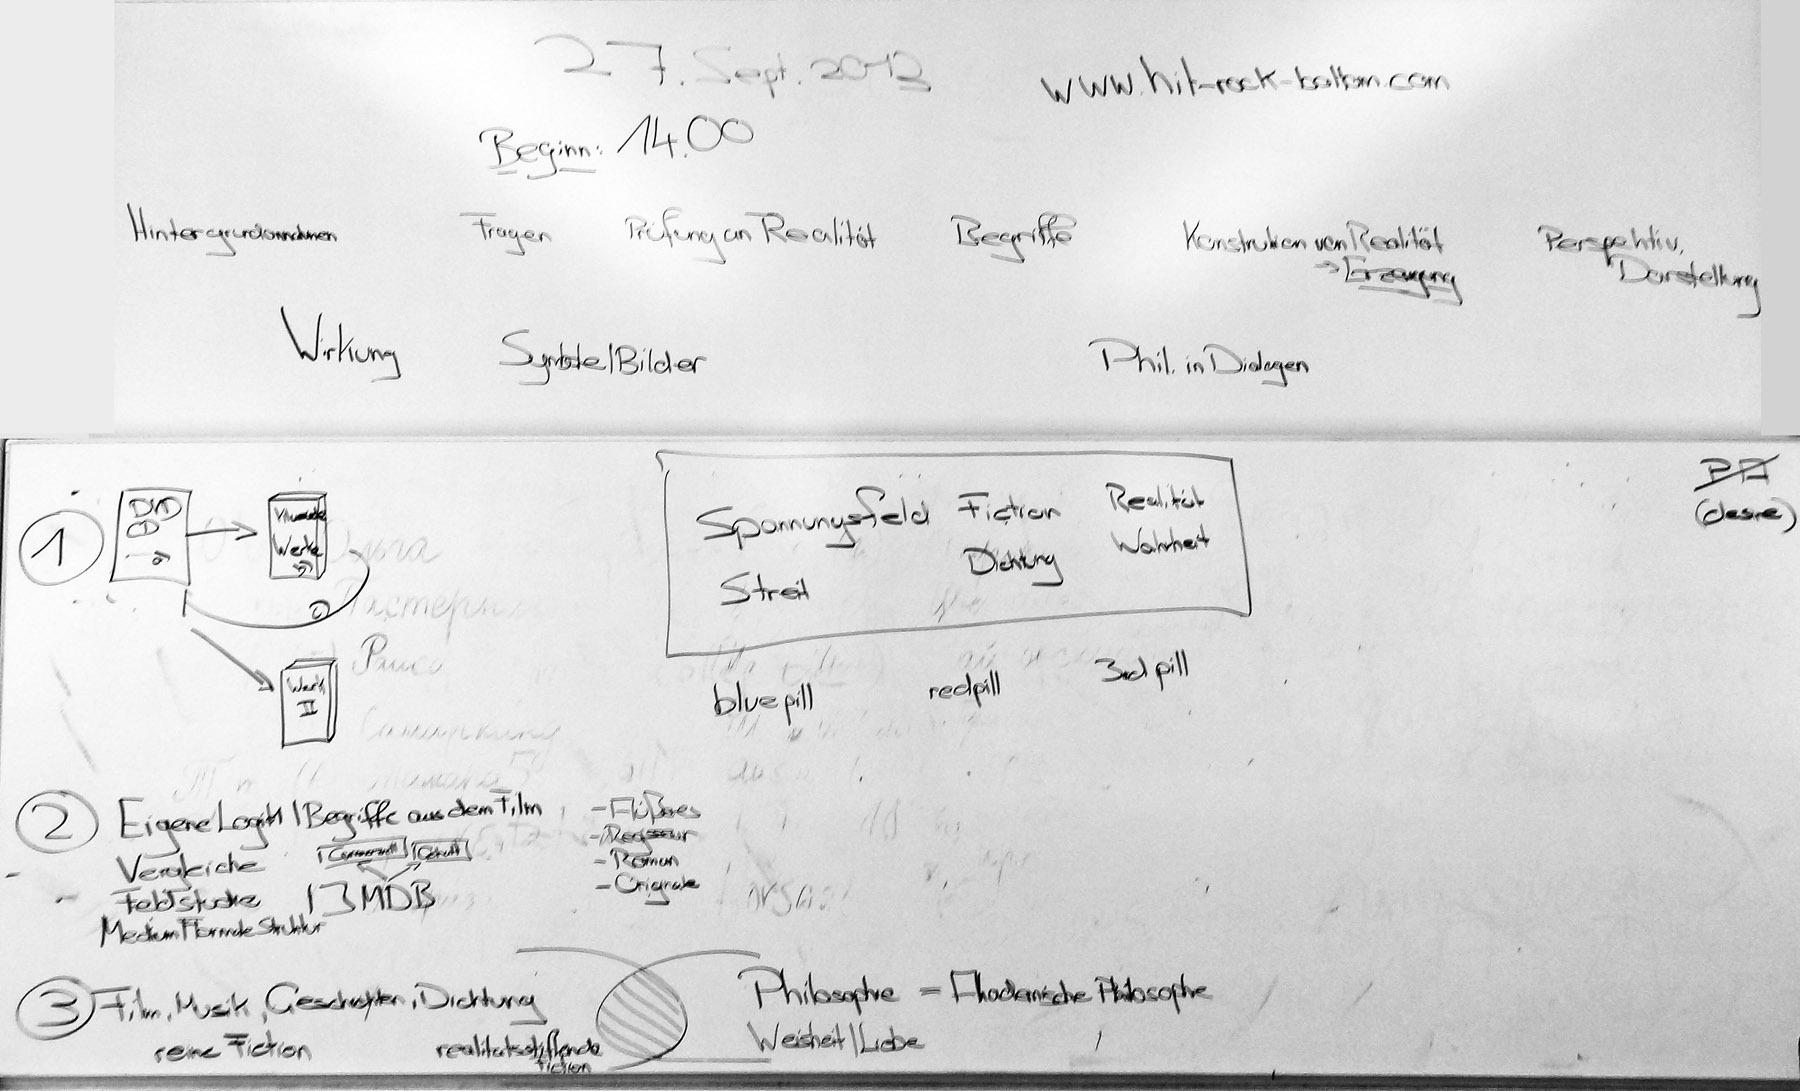 27. Sept. 2012
www.hit-rock-bottom.com
Beginn: 14.00
Hintergrundannahmen
Fragen
Prüfung an Realität
Begriffe
Konstruktion von Realität
→ Erzeugung
Perspektiv.
Darstellung
Wirkung
Symbole/Bilder
Phil. in Dialogen
1
DVD
Werke
Werk
II
Spannungsfeld
Fiction
Realität
Dichtung
Wahrheit
Streit
blue pill
red pill
3rd pill
(desire)
2
Eigene Logik / Begriffe aus dem Film
Vergleiche
13 MDB
- Regisseur
- Roman
- Originale
3
Film, Musik, Geschichten, Dichtung
reine Fiction
realitätsstiftende
Fiction
Philosophie = Akademische Philosophie
Weisheit/Liebe